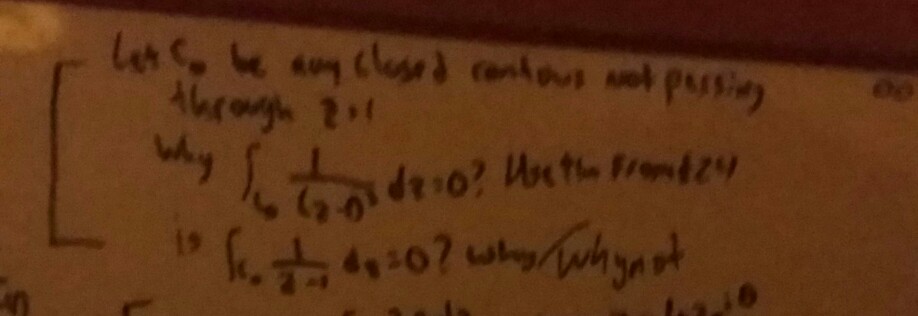 Let C₀ be any closed contour not passing
through z=1
Why ∫_C₀ 1/(z-1)³ dz=0? Use thm from
is ∫_C₀ 1/(z-1) dz=0? why/why not